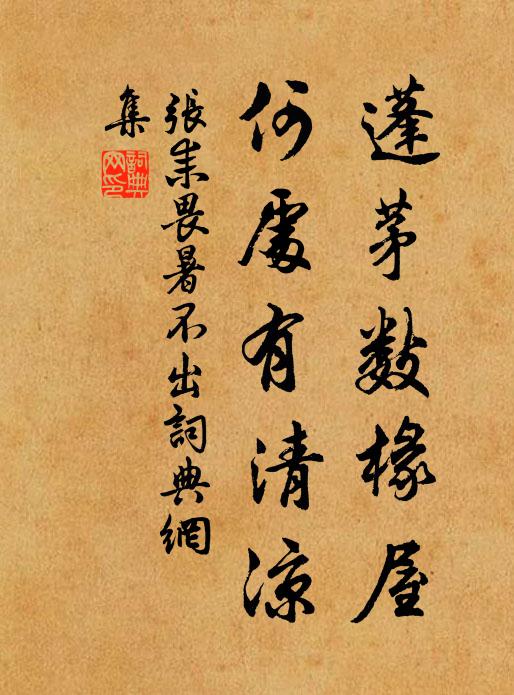 蓬茅數椽屋
何處有清涼
張耒畏暑不出詞典網
集
詞典網印